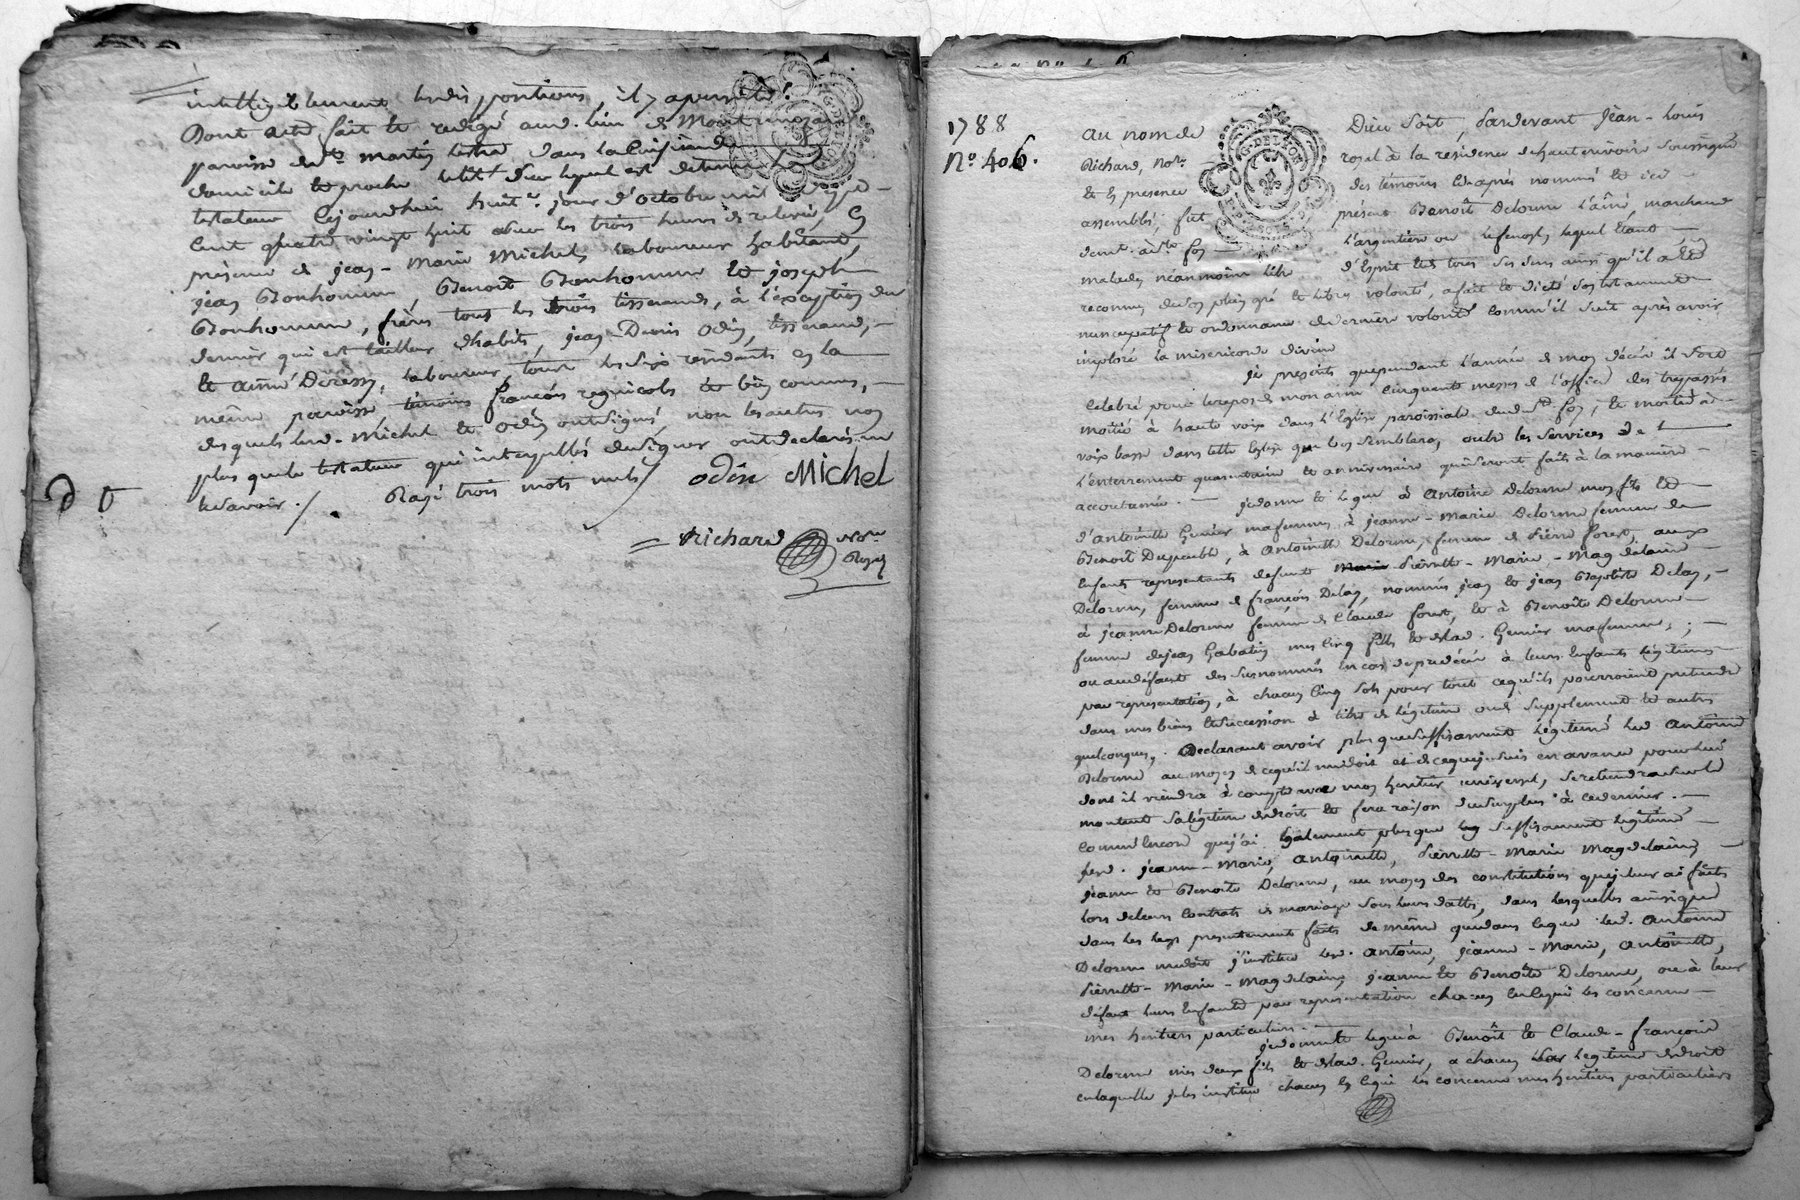 intelligiblement ses dispositions, il y a persisté.
Dont acte fait et redigé aud. lieu de
paroisse de St. Martin Lestra, dans la cuisine
domicile et proche le lit sur lequel est detenu led.
testateur cejourdhui huite. jour d'octobre mil sept
cent quatre vingt huit avec les trois heures de relevée, en
présence de jean-Marie Michel, laboureur habitant,
jean Bonhomme, Benoît Bonhomme et joseph
Bonhomme, frères tous les trois tisserands, à l'exception du
dernier qui est tailleur d'habits, jean Denis Odin, tisserand,
et aimé laboureur tous les six résidants en la
même paroisse, témoins françois regnicols et bien connus,
desquels led. Michel et odin ont signé, non les autres non
plus que le testateur qui interpellés de signer ont declarés ne
le savoir. / Rayé trois mots nuls / odin Michel
Richard Nore.
Royal
1788
No. 406.
au nom de Dieu soit, pardevant Jean-Louis
Richard, Nore. royal à la résidence de hauterivoire soussigné
et en présence des témoins cy après nommés et icy
assemblés, fut présent Benoît Delorme l'aîné, marchand
demt. à Ste. foy l'argentière lequel étant
malade, néanmoins libre d'esprit et de tous ses sens ainsi qu'il a été
reconnu, de son plein gré et libre volonté, a fait et dicté son testament
nuncupatif et ordonnance de dernière volonté comm'il suit après avoir
imploré la misericorde divine
je prescrits que pendant l'année de mon décès il soit
celebré pour le repos de mon ame cinquante messes de l'office des trepassés
moitié à haute voix dans l'Eglise paroissiale dud. Ste. foy, et moitié à
voix basse dans telle Eglise que bon semblera, outre les services de
l'enterrement quarantaine et anniversaire qui seront faits à la manière
accoutumée. je donne et legue à Antoine Delorme mon fils et
d'antoinette Genier ma femme, à jeanne-Marie Delorme femme de
Benoît à Antoinette Delorme, femme de Pierre forest, aux
enfants representants defunte Pierrette-Marie-Magdelaine
Delorme, femme de françois Delay, nommés jean et jean Baptiste Delay,
à jeanne Delorme femme de Claude forest, et à Benoîte Delorme
femme de jean mes cinq filles et de lad. Genier ma femme;
ou au défaut des susnommés en cas de predécès à leurs enfants légitimes
par representation, à chacun cinq sols pour tout ce qu'ils pourroient pretendre
dans mes biens et succession à titre de légitime suplement et autres
quelconques. Declarant avoir plus que suffisamment légitimé led. Antoine
Delorme au moyen de ce qu'il me doit et de ce que je suis en avance pour lui
dont il viendra à compte avec mon heritier universel, se retiendra sur le
montant sa légitime de droit et fera raison du surplus à ce dernier.
Comme encore que j'ai également plus que suffisamment légitimé
lesd. jeanne-Marie, Antoinette, Pierrette-Marie Magdelaine
jeanne et Benoîte Delorme, au moyen des constitutions que je leur ai faits
lors de leurs contrats de mariage sous leurs dattes, dans lesquelles ainsi que
dans les legs presentement faits de même que dans ce que led. Antoine
Delorme me doit j'institue led. Antoine, jeanne-Marie, Antoinette,
Pierrette-Marie-Magdelaine, jeanne et Benoîte Delorme, ou à leur
défaut leurs enfants par representation chacun en ce qui les concerne
mes heritiers particuliers. je donne et legue à Benoît et Claude-françois
Delorme mes deux fils et de lad. Genier, a chacun leur legitime de droit
en laquelle je les institue chacun en ce qui les concerne mes heritiers particuliers